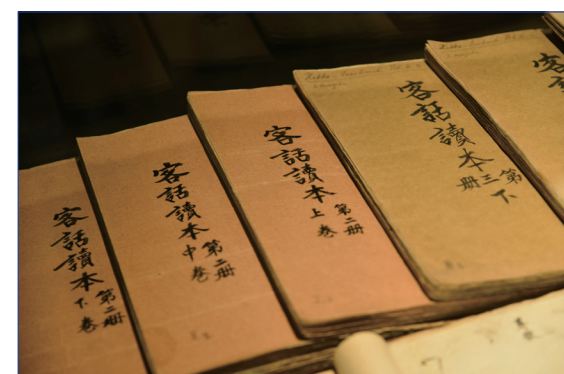 客話讀本
第二册
下卷
客話讀本
第二册
中卷
客話讀本
第二册
上卷
客話讀本
第三册
下
客